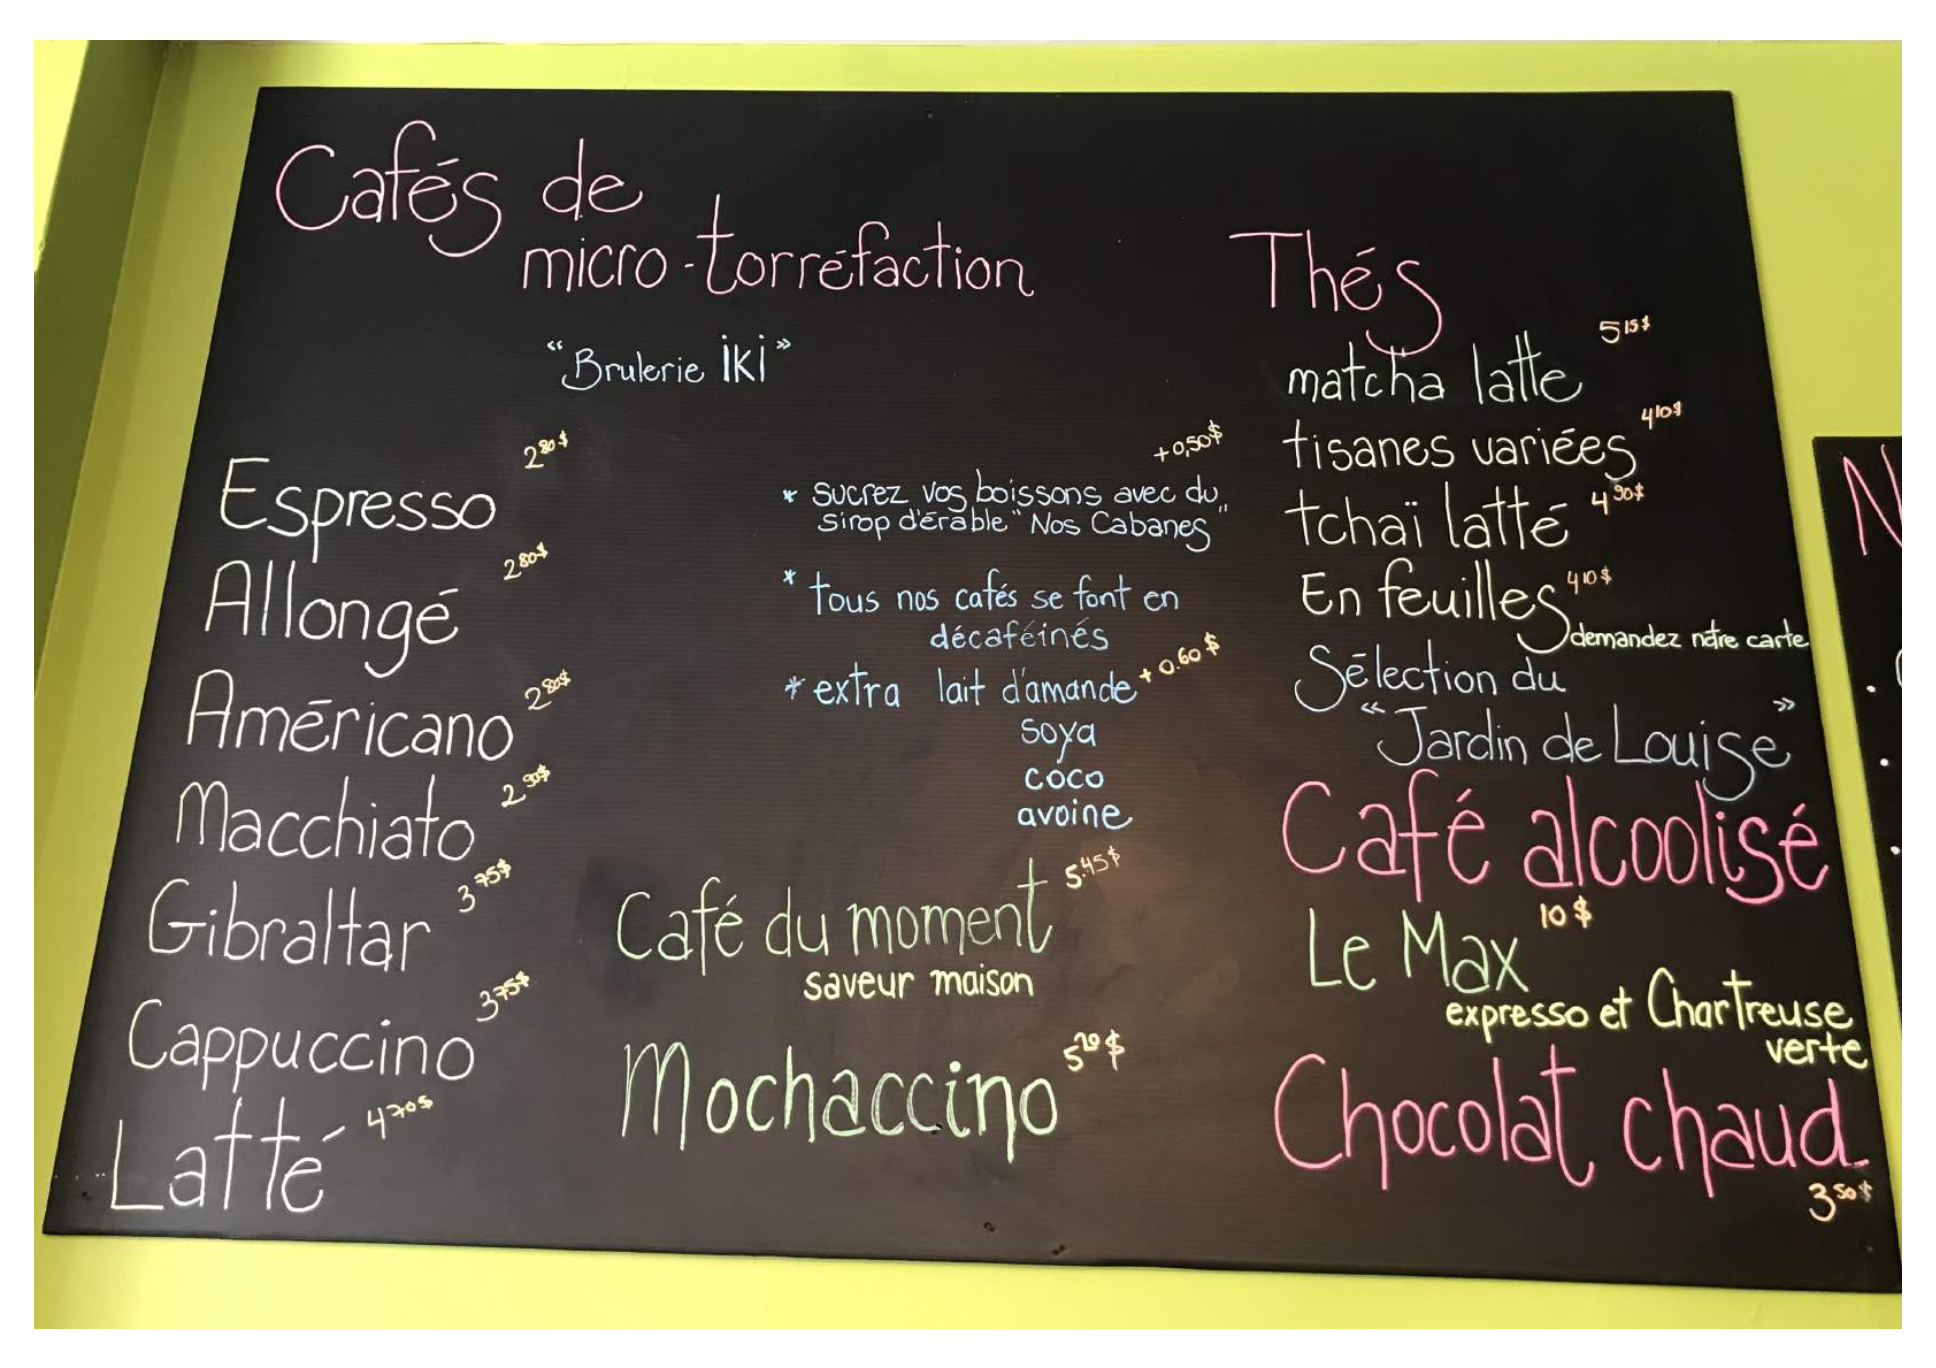 Cafés de
micro-torréfaction
"Brulerie iKi"
Espresso 2 80$
Allongé 2 80$
Américano 2 80$
Macchiato 2 90$
Gibraltar 3 75$
Cappuccino 3 75$
Latté 4 70$
+0,50$
* sucrez vos boissons avec du
sirop d'érable "Nos Cabanes"
* tous nos cafés se font en
décaféinés
* extra lait d'amande + 0.60$
soya
coco
avoine
Café du moment 5.45$
saveur maison
Mochaccino 5 20$
Thés
matcha latte 5 15$
tisanes variées 4 10$
tchaï latté 4 90$
En feuilles 4 10$
demandez nôtre carte
Sélection du
"Jardin de Louise"
Café alcoolisé
Le Max 10$
expresso et Chartreuse
verte
Chocolat chaud
3 50$